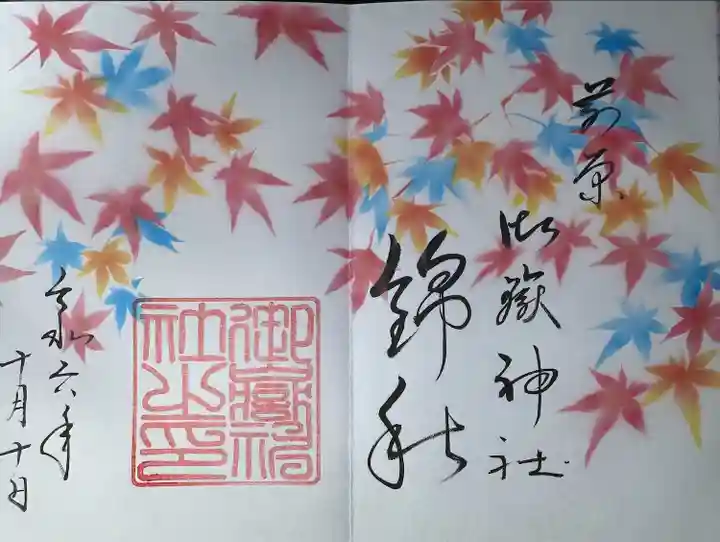 前原
御嶽神社
錦秋
御嶽神
社之印
令和六年
十月十日